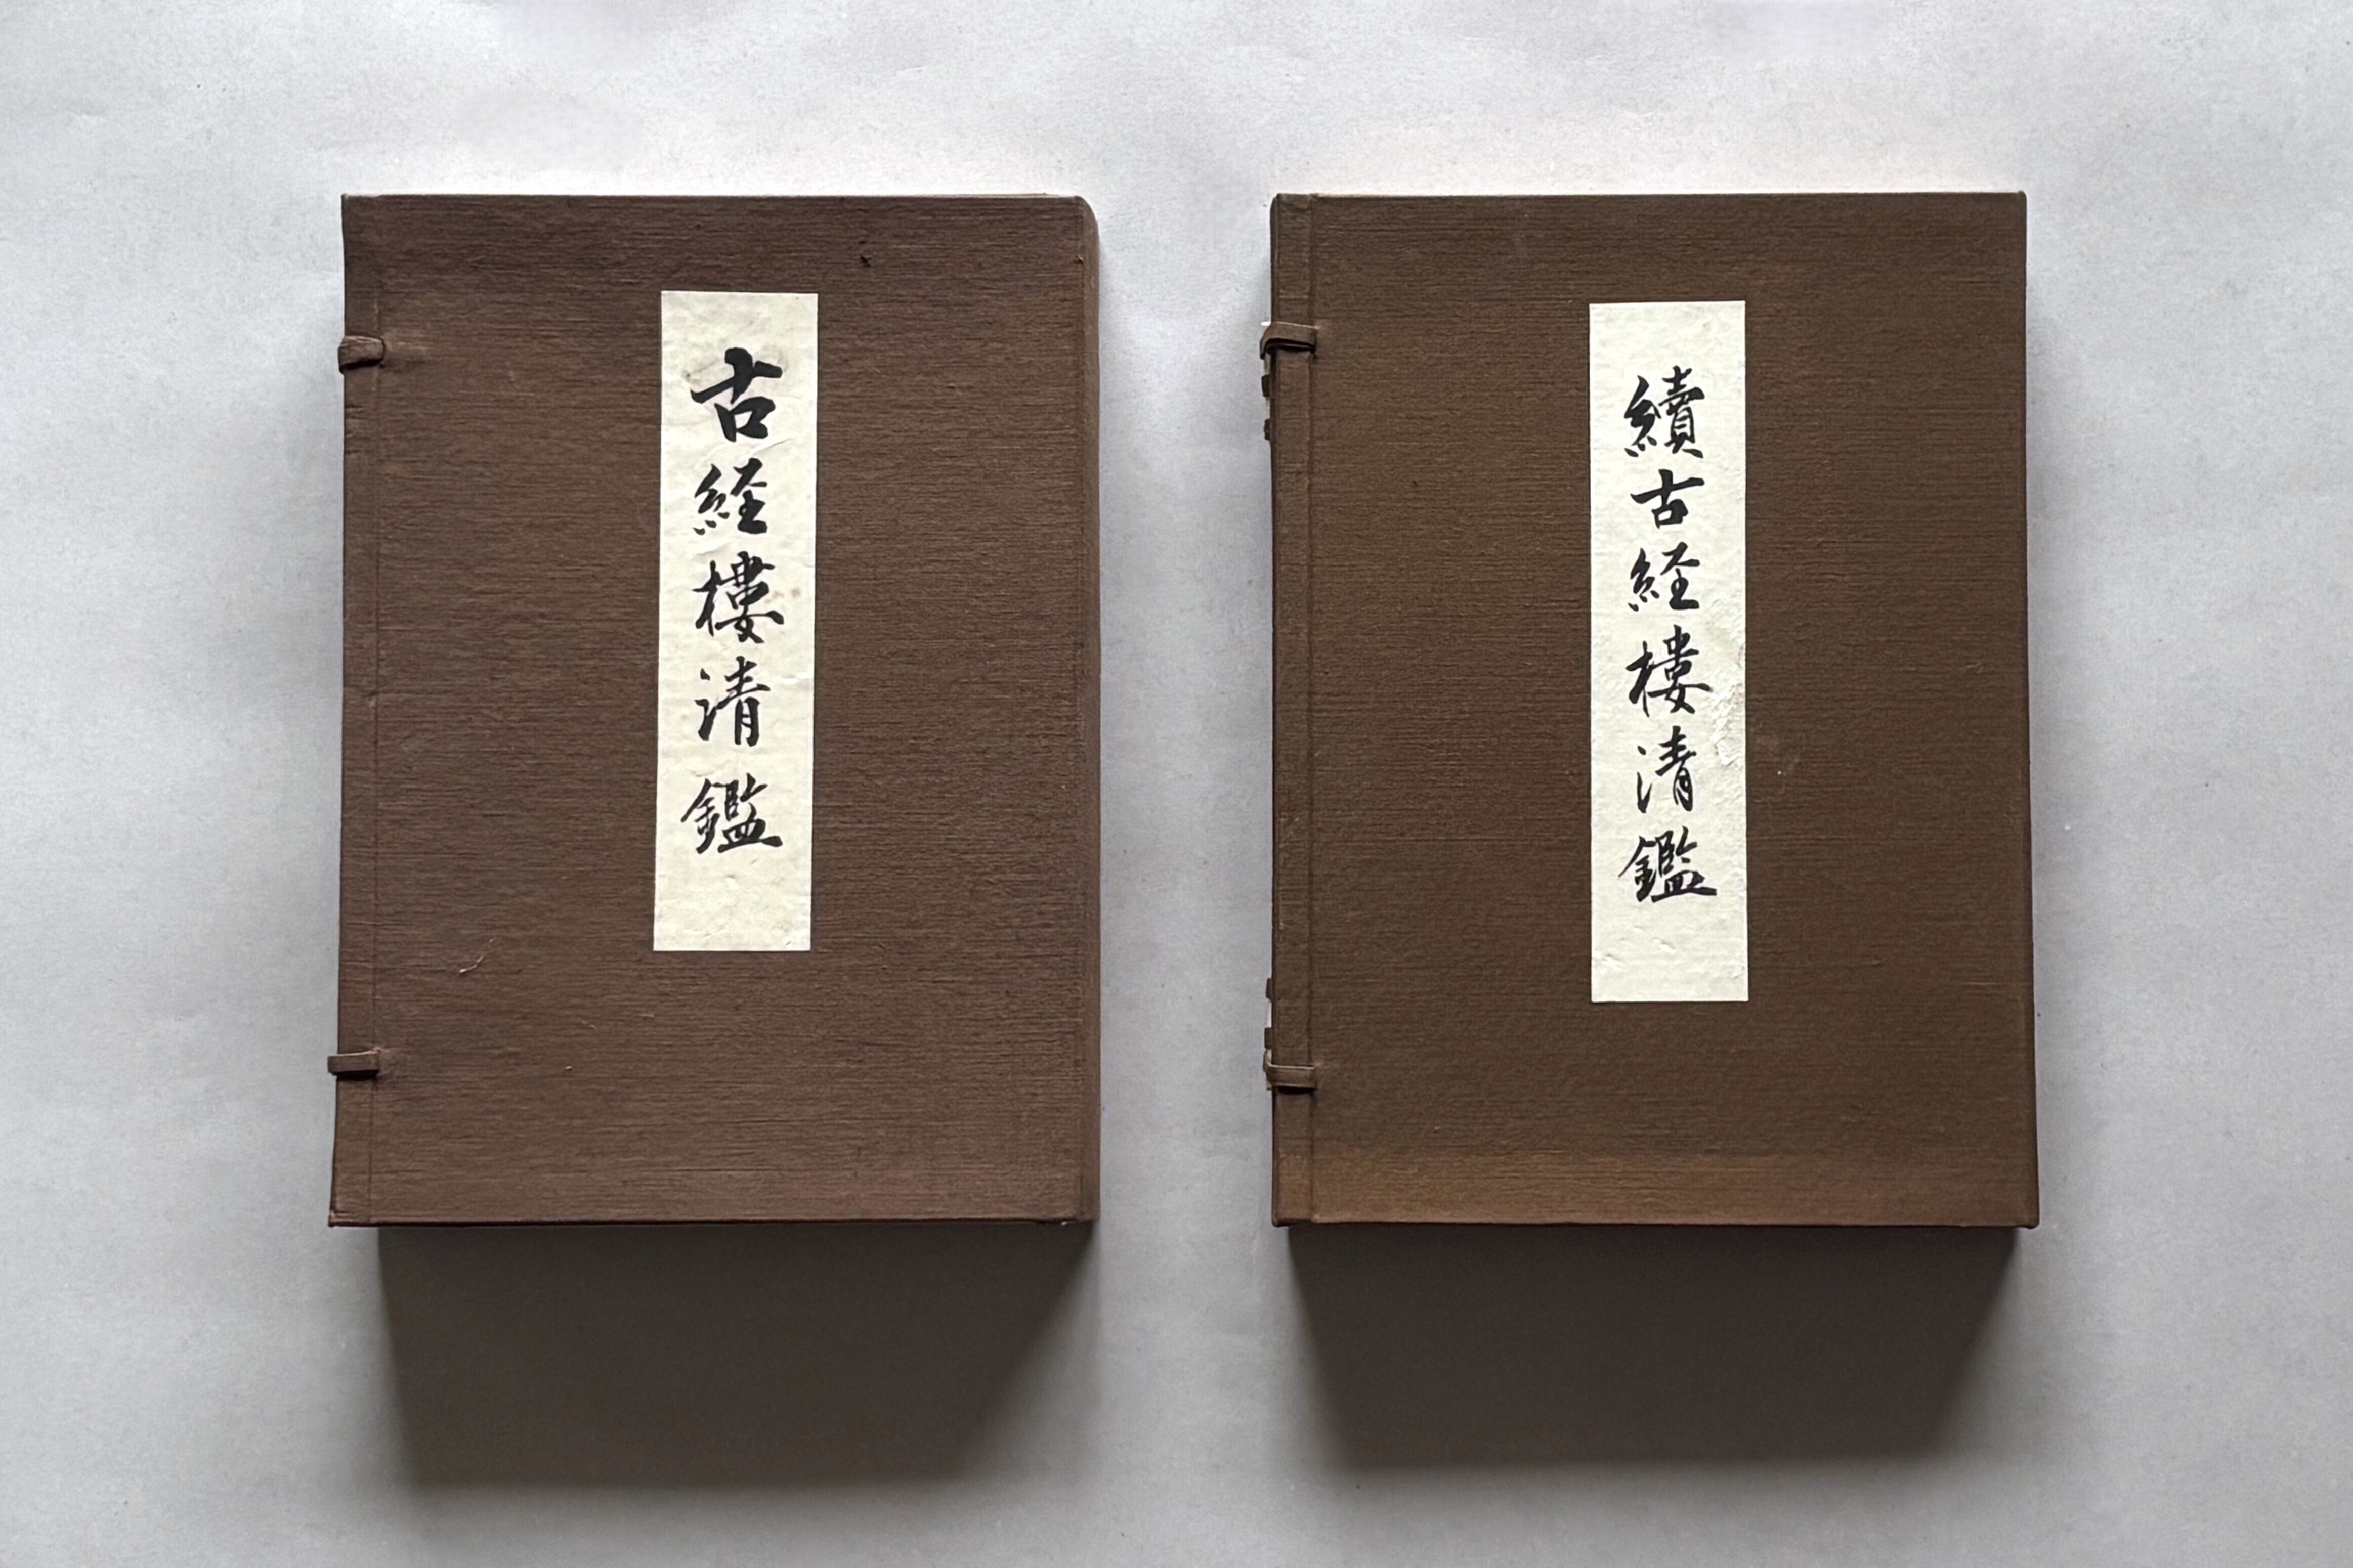 古経樓清鑑
續古経樓清鑑